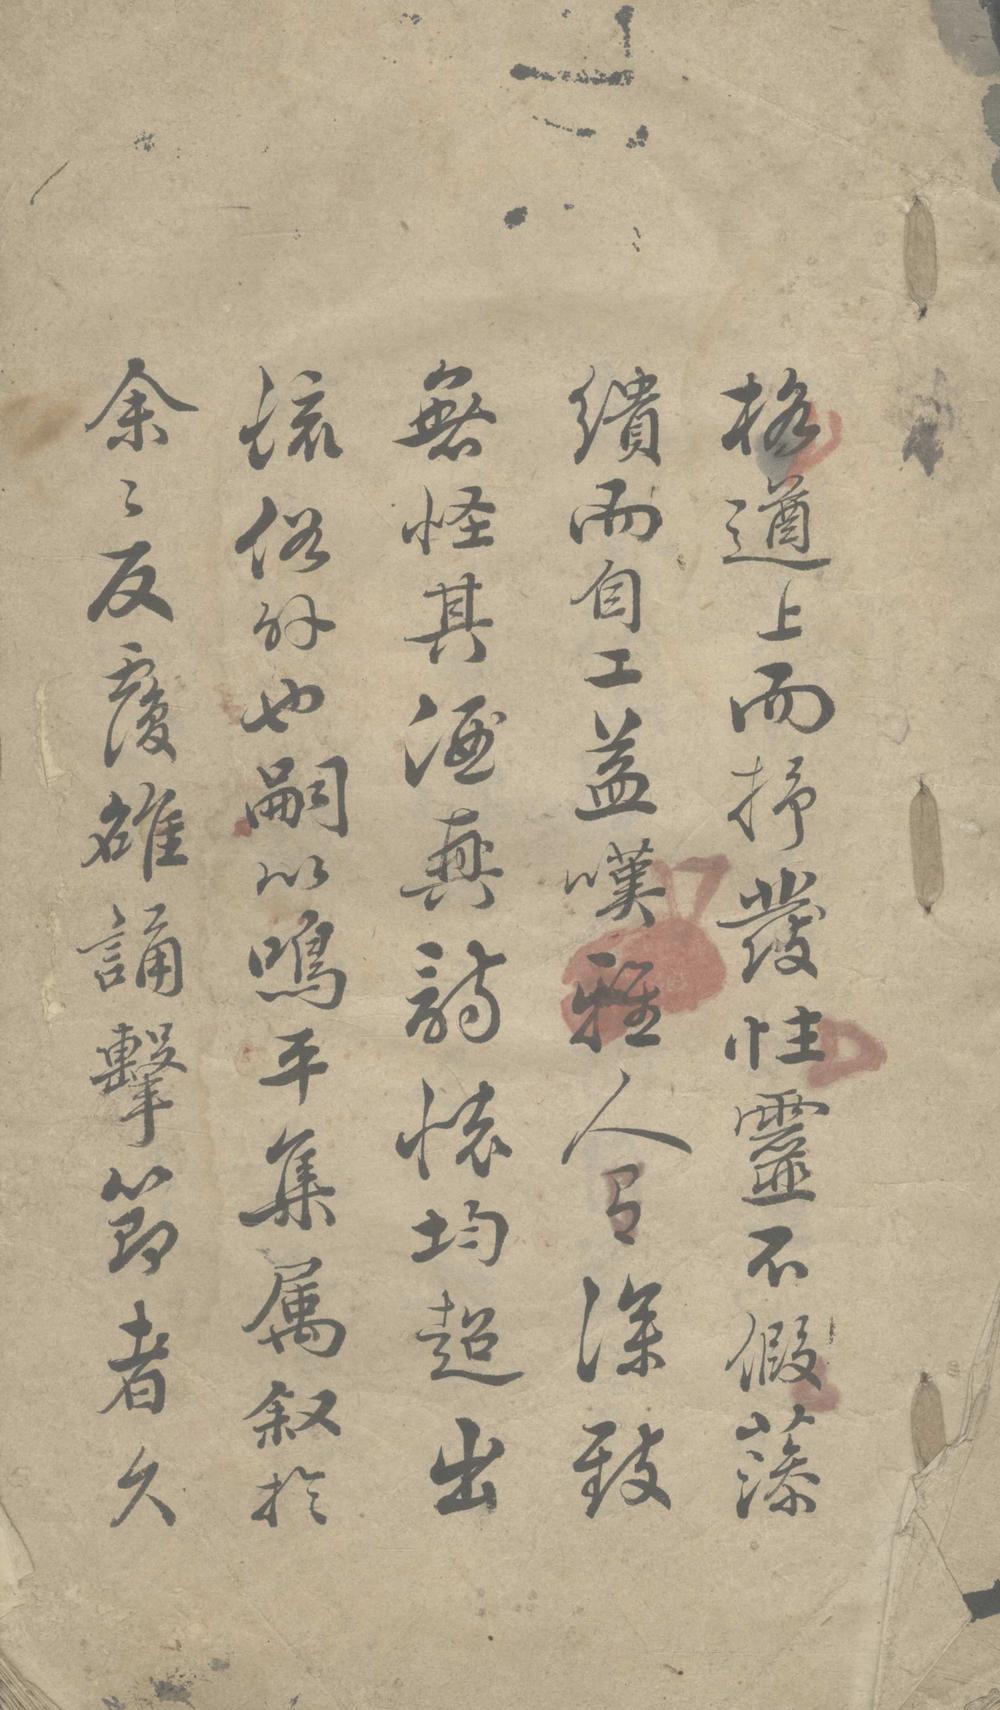 格遒上而抒發性靈不假藻
繢而自工益嘆雅人深致
無怪其酒興詩懷均超出
流俗外也嗣以鳴平集属叙於
余〻反覆雒誦擊節者久